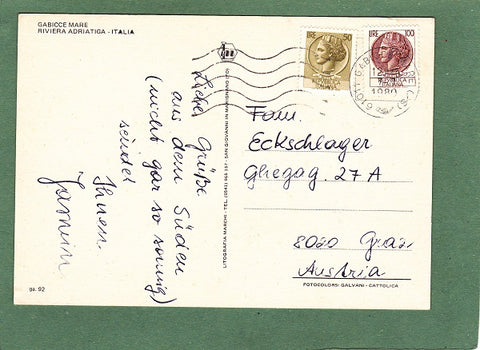 GABICCE MARE
RIVIERA ADRIATIGA - ITALIA
Liebe Grüße
aus dem Süden
(nicht gar so sonnig)
sendet
Ihnen
ga. 92
LITOGRAFIA MARCHI - TEL. (0541)
SAN GIOVANNI IN MARIGNANO (FO)
LIRE
LIRE 100
ITALIANA
61011 GAB
1980
Fam.
Eckschlager
Ghegag. 27 A
8020 Graz
Austria
FOTOCOLORI: GALVANI - CATTOLICA